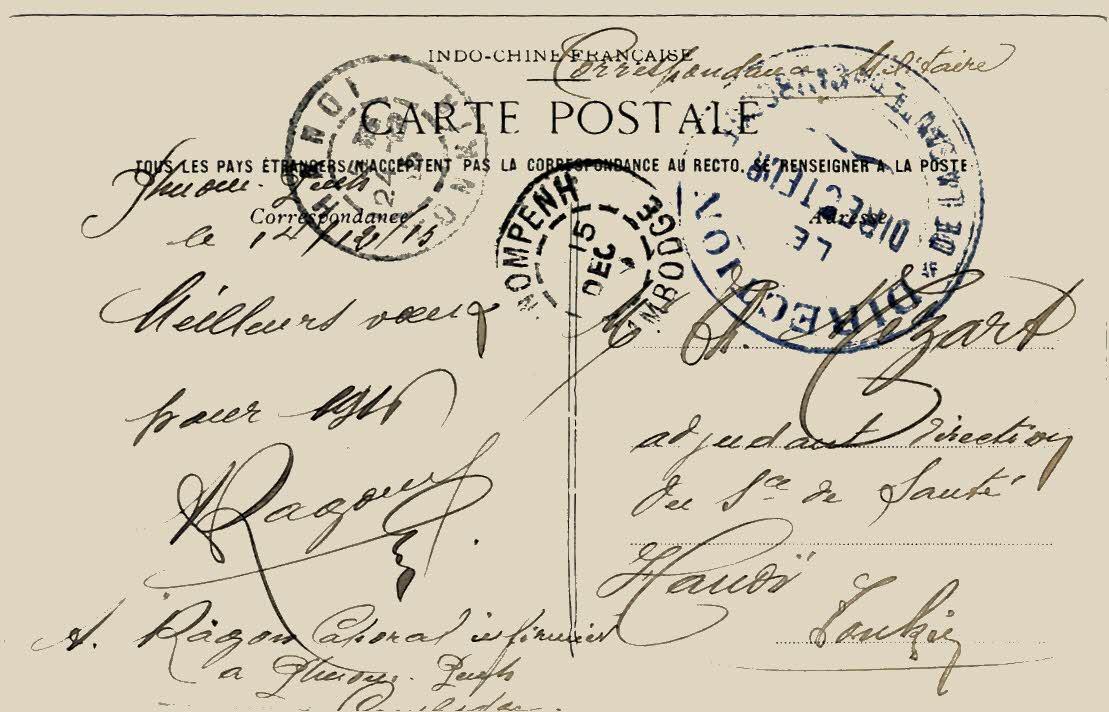 INDO-CHINE FRANÇAISE
Correspondance Militaire
CARTE POSTALE
TOUS LES PAYS ÉTRANGERS N'ACCEPTENT PAS LA CORRESPONDANCE AU RECTO. SE RENSEIGNER A LA POSTE
Correspondance
Adresse
HANOI
TONKIN
PNOMPENH
CAMBODGE
15
DEC
DIRECTION
LE
DIRECTEUR
Phnom-Penh
le 14/12/15
Meilleurs vœux
pour 1916
Ragon
A. Ragon Caporal infirmier
a Phnom-Penh
Cambodge
Mr A. Mézart
adjudant Direction
du Sce de Santé
Hanoï
Tonkin